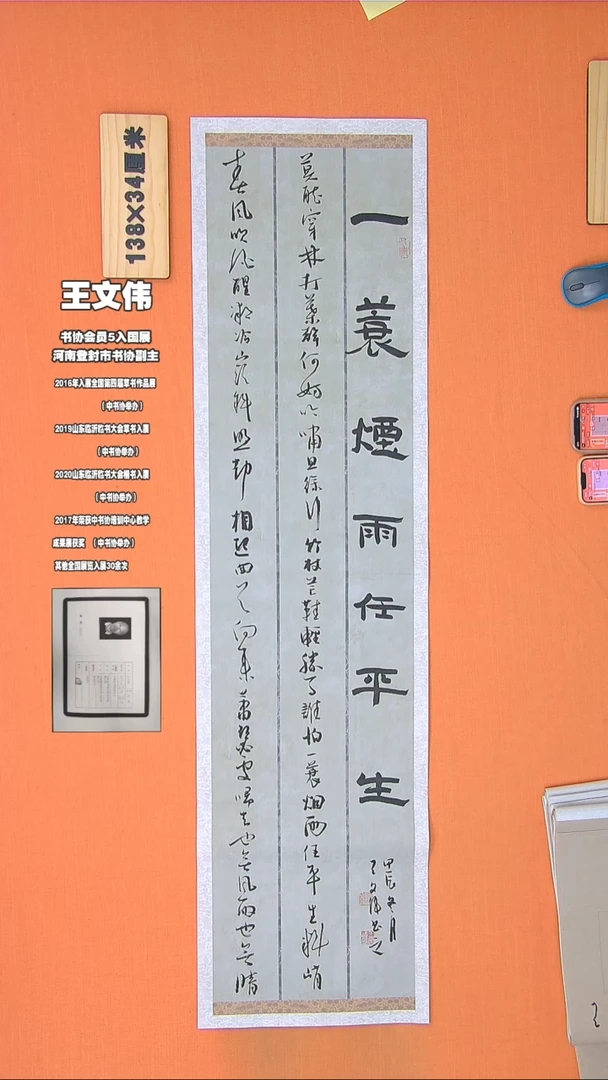 138×34厘米
王文伟
书协会员5入国展
河南登封市书协副主
2016年入展全国第四届草书作品展
（中书协举办）
2019山东临沂临书大会草书入展
（中书协举办）
2020山东临沂临书大会楷书入展
（中书协举办）
2017年荣获中书协培训中心教学
成果展获奖 （中书协举办）
其他全国展览入展30余次
一蓑煙雨任平生
甲辰冬月
王文偉书之
莫聽穿林打葉聲何妨吟嘯且徐行竹杖芒鞋輕勝馬誰怕一蓑烟雨任平生料峭
春風吹酒醒微冷山頭斜照却相迎回首向來蕭瑟處歸去也無風雨也無晴